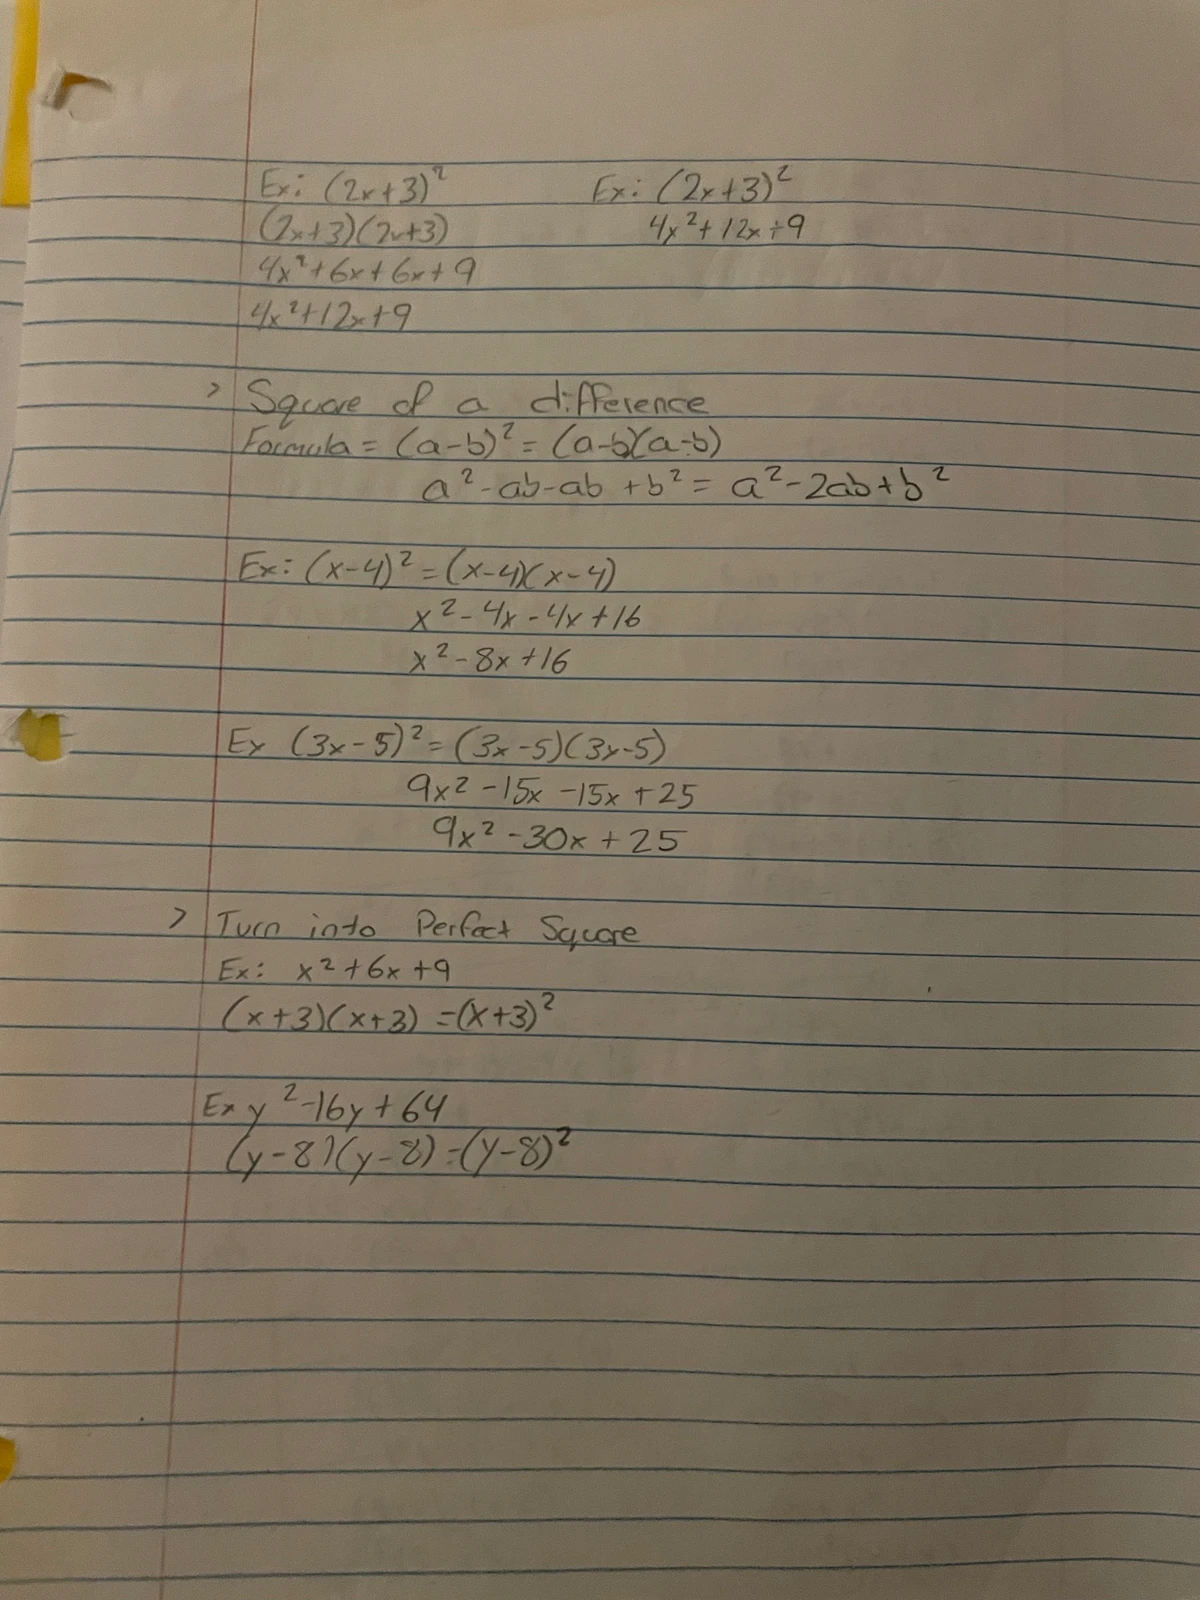 Ex: (2x+3)²
(2x+3)(2x+3)
4x²+6x+6x+9
4x²+12x+9
Ex: (2x+3)²
4x²+12x+9
> Square of a difference
Formula = (a-b)² = (a-b)(a-b)
a²-ab-ab+b² = a²-2ab+b²
Ex: (x-4)² = (x-4)(x-4)
x²-4x-4x+16
x²-8x+16
Ex (3x-5)² = (3x-5)(3x-5)
9x²-15x-15x+25
9x²-30x+25
> Turn into Perfect Square
Ex: x²+6x+9
(x+3)(x+3) = (x+3)²
Ex y²-16y+64
(y-8)(y-8) = (y-8)²